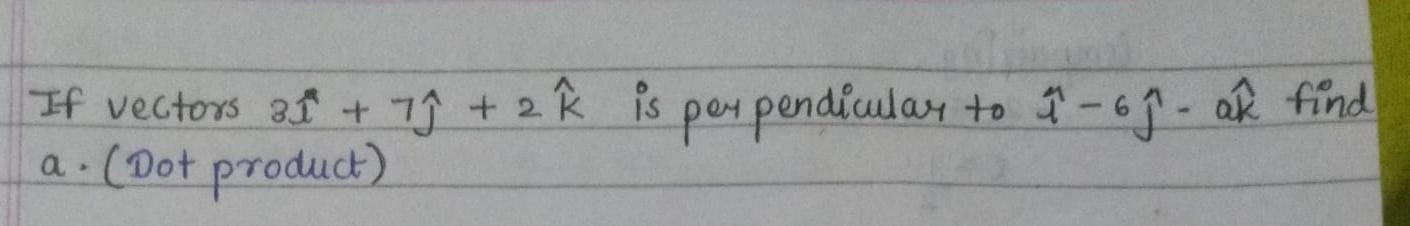 If vectors 3î + 7ĵ + 2k̂ is perpendicular to î - 6ĵ - ak̂ find
a. (Dot product)